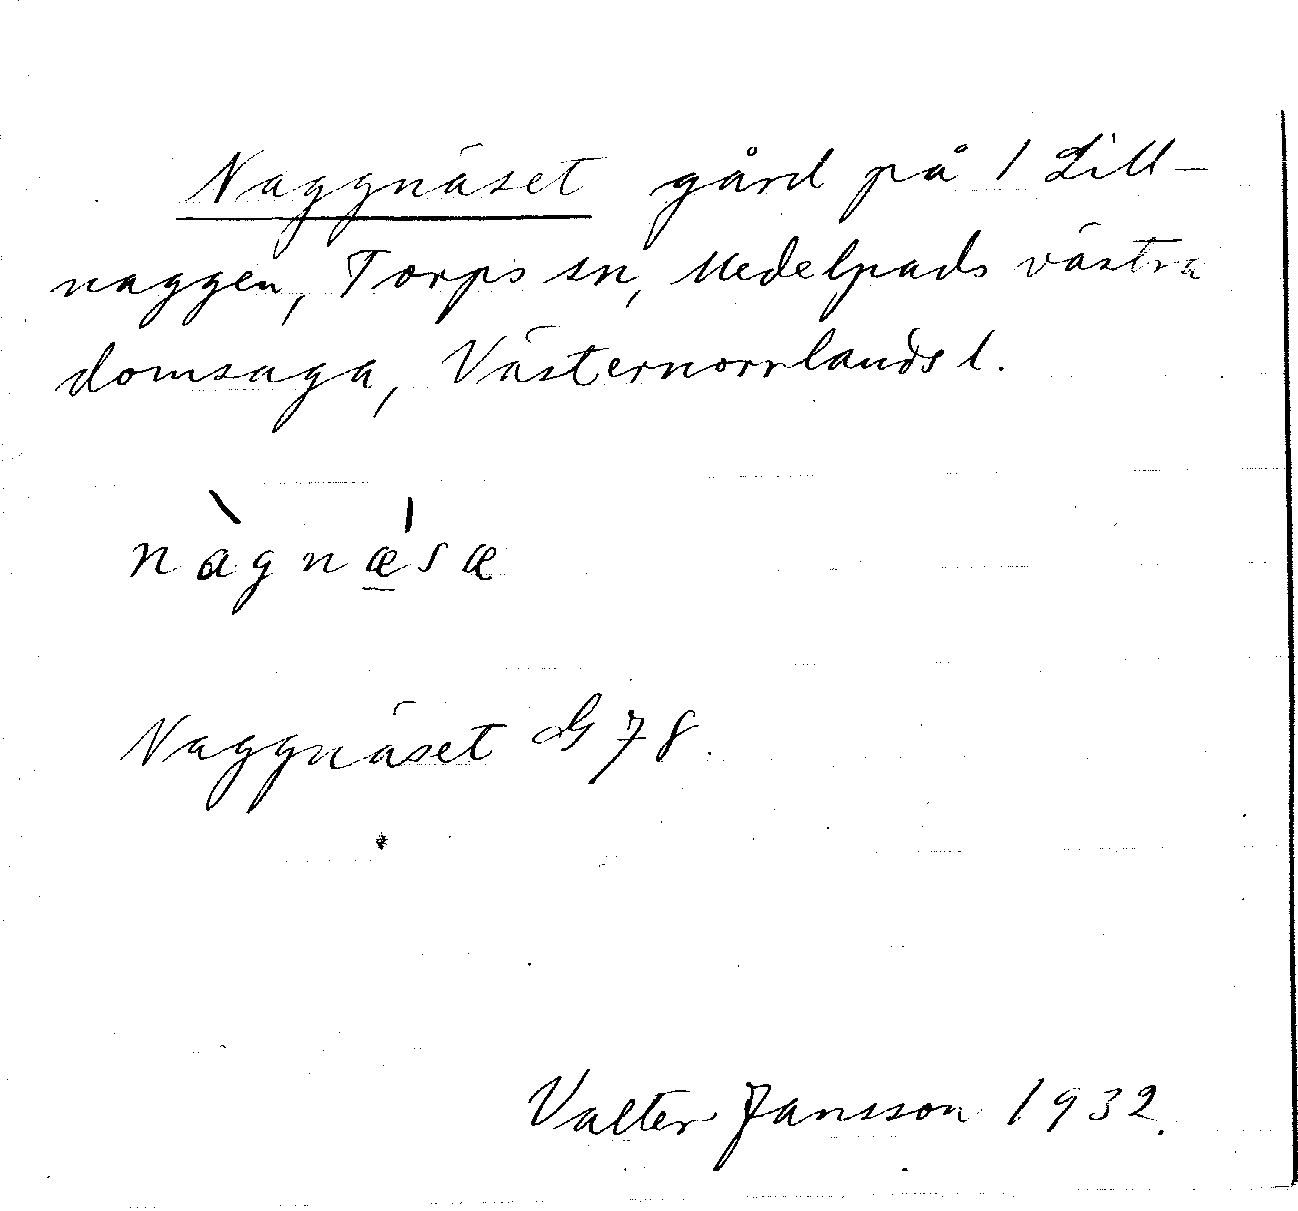 Naggnäset gård på 1 Lill-
naggen, Torps sn, Medelpads västra
domsaga, Västernorrlands l.
nàgnǽsæ
Naggnäset G 78.
Valter Jansson 1932.